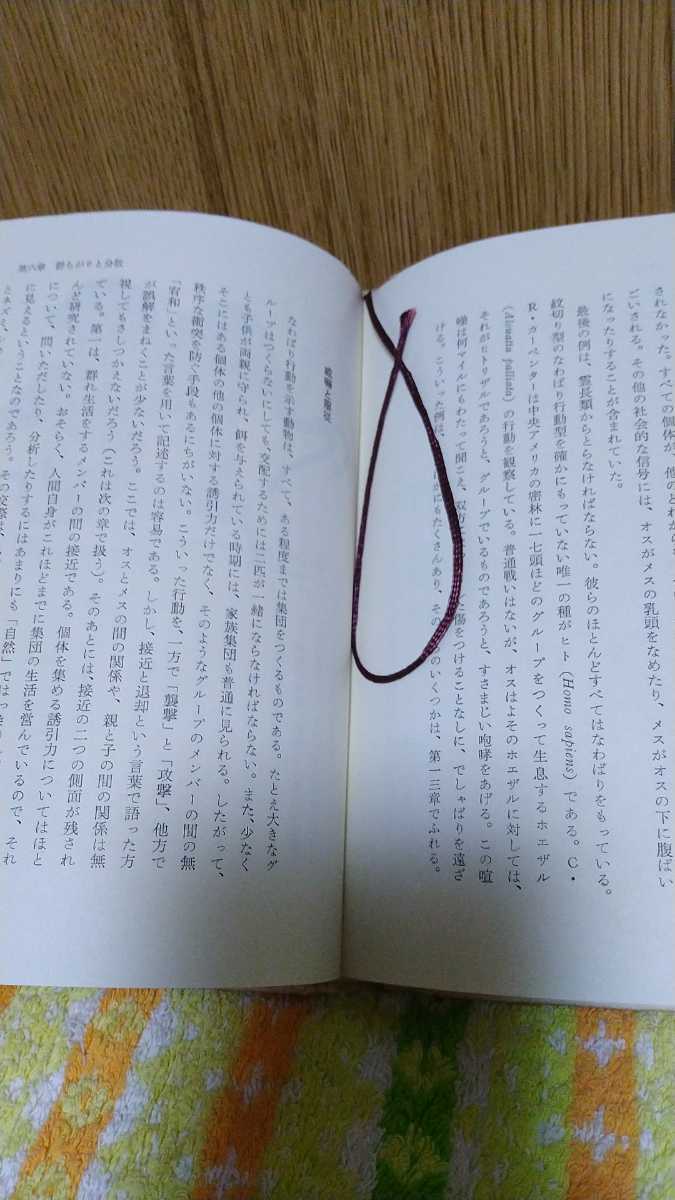 されなかった。すべての個体が、他の
ごいされる。その他の社会的な信号には、オスがメスの乳頭をなめたり、メスがオスの下に腹ばい
になったりすることが含まれていた。
最後の例は、霊長類からとらなければならない。彼らのほとんどすべてはなわばりをもっている。
紋切り型のなわばり行動型を確かにもっていない唯一の種がヒト（Homo sapiens）である。C・
R・カーペンターは中央アメリカの密林に一七頭ほどのグループをつくって生息するホエザル
（Alouatta palliata）の行動を観察している。普通戦いはないが、オスはよそのホエザルに対しては、
それがヒトリザルであろうと、グループでいるものであろうと、すさまじい咆哮をあげる。この喧
噪は何マイルにもわたって聞こえ、双方 傷をつけることなしに、でしゃばりを遠ざ
ける。こういった例は、 にもたくさんあり、その のいくつかは、第一三章でふれる。
第六章 群らがりと分散
威嚇と服従
なわばり行動を示す動物は、すべて、ある程度までは集団をつくるものである。たとえ大きなグ
ループはつくらないにしても、交配するためには二匹が一緒にならなければならない。また、少なく
とも子供が両親に守られ、餌を与えられている時期には、家族集団も普通に見られる。したがって、
そこにはある個体の他の個体に対する誘引力だけでなく、そのようなグループのメンバーの間の無
秩序な衝突を防ぐ手段もあるにちがいない。こういった行動を、一方で「襲撃」と「攻撃」、他方で
「宥和」といった言葉を用いて記述するのは容易である。しかし、接近と退却という言葉で語った方
が誤解をまねくことが少ないだろう。ここでは、オスとメスの間の関係や、親と子の間の関係は無
視してもさしつかえないだろう（これは次の章で扱う）。そのあとには、接近の二つの側面が残され
ている。第一は、群れ生活をするメンバーの間の接近である。個体を集める誘引力についてはほと
んど研究されていない。おそらく、人間自身がこれほどまでに集団の生活を営んでいるので、それ
について、問いただしたり、分析したりするにはあまりにも「自然」ではっきり
に見えるということなのであろう。その
とネズミ、